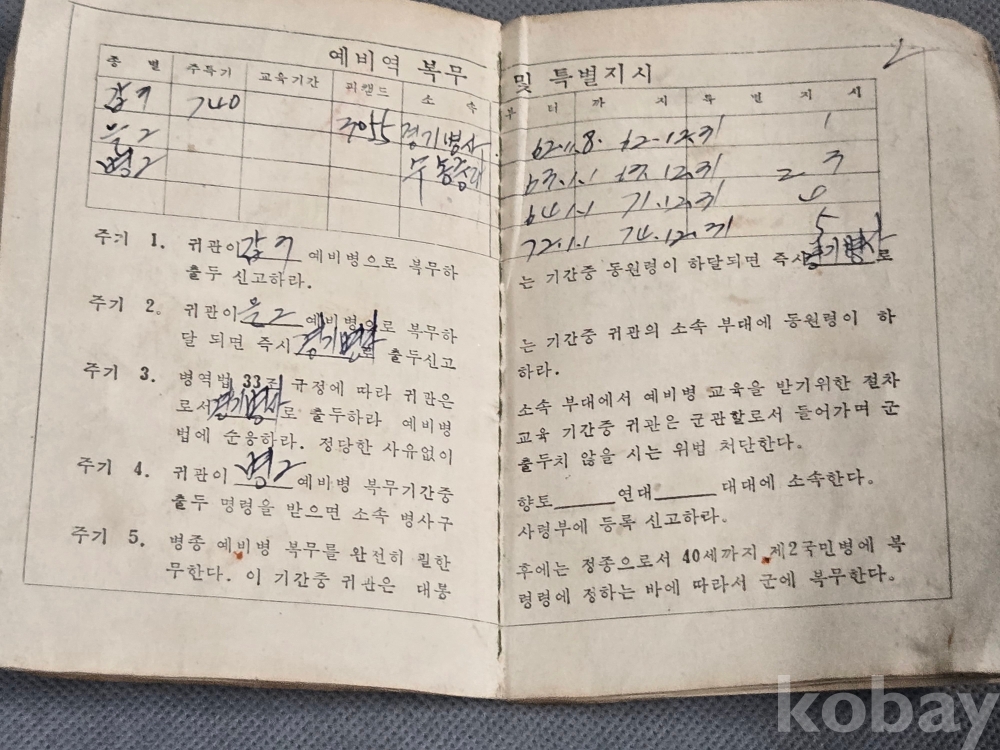 예비역 복무 및 특별지시
종 별 주특기 교육기간 피캘드 소 속 부 터 까 지 특 별 지 시
740 경기병사 62.11.8. 62.12.31 1
을2 63.1.1 63.12.31 2 3
병2 64.1.1 71.12.31 4
72.1.1 74.12.31 5
주기 1. 귀관이 예비병으로 복무하는 기간중 동원령이 하달되면 즉시 경기병사로
출두 신고하라.
주기 2. 귀관이 을2 예비병으로 복무하는 기간중 귀관의 소속 부대에 동원령이 하
달 되면 즉시 경기병사로 출두신고하라.
주기 3. 병역법 33조 규정에 따라 귀관은 소속 부대에서 예비병 교육을 받기위한 절차
로서 경기병사로 출두하라 예비병 교육 기간중 귀관은 군관할로서 들어가며 군
법에 순응하라. 정당한 사유없이 출두치 않을 시는 위법 처단한다.
주기 4. 귀관이 병2 예비병 복무기간중 향토______연대______대대에 소속한다.
출두 명령을 받으면 소속 병사구사령부에 등록 신고하라.
주기 5. 병종 예비병 복무를 완전히 필한후에는 정종으로서 40세까지 제2국민병에 복
무한다. 이 기간중 귀관은 대통령령에 정하는 바에 따라서 군에 복무한다.
kobay